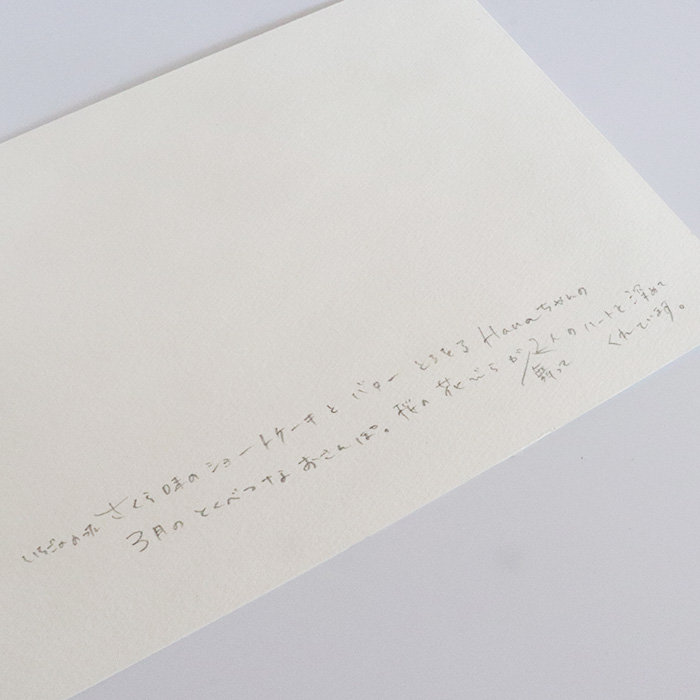 いちごの さくら味のショートケーキと バター とろける Hanaちゃんの
3月の とくべつな おさんぽ。桜の花びらが 2人のハートを 深めて
舞って くれています。